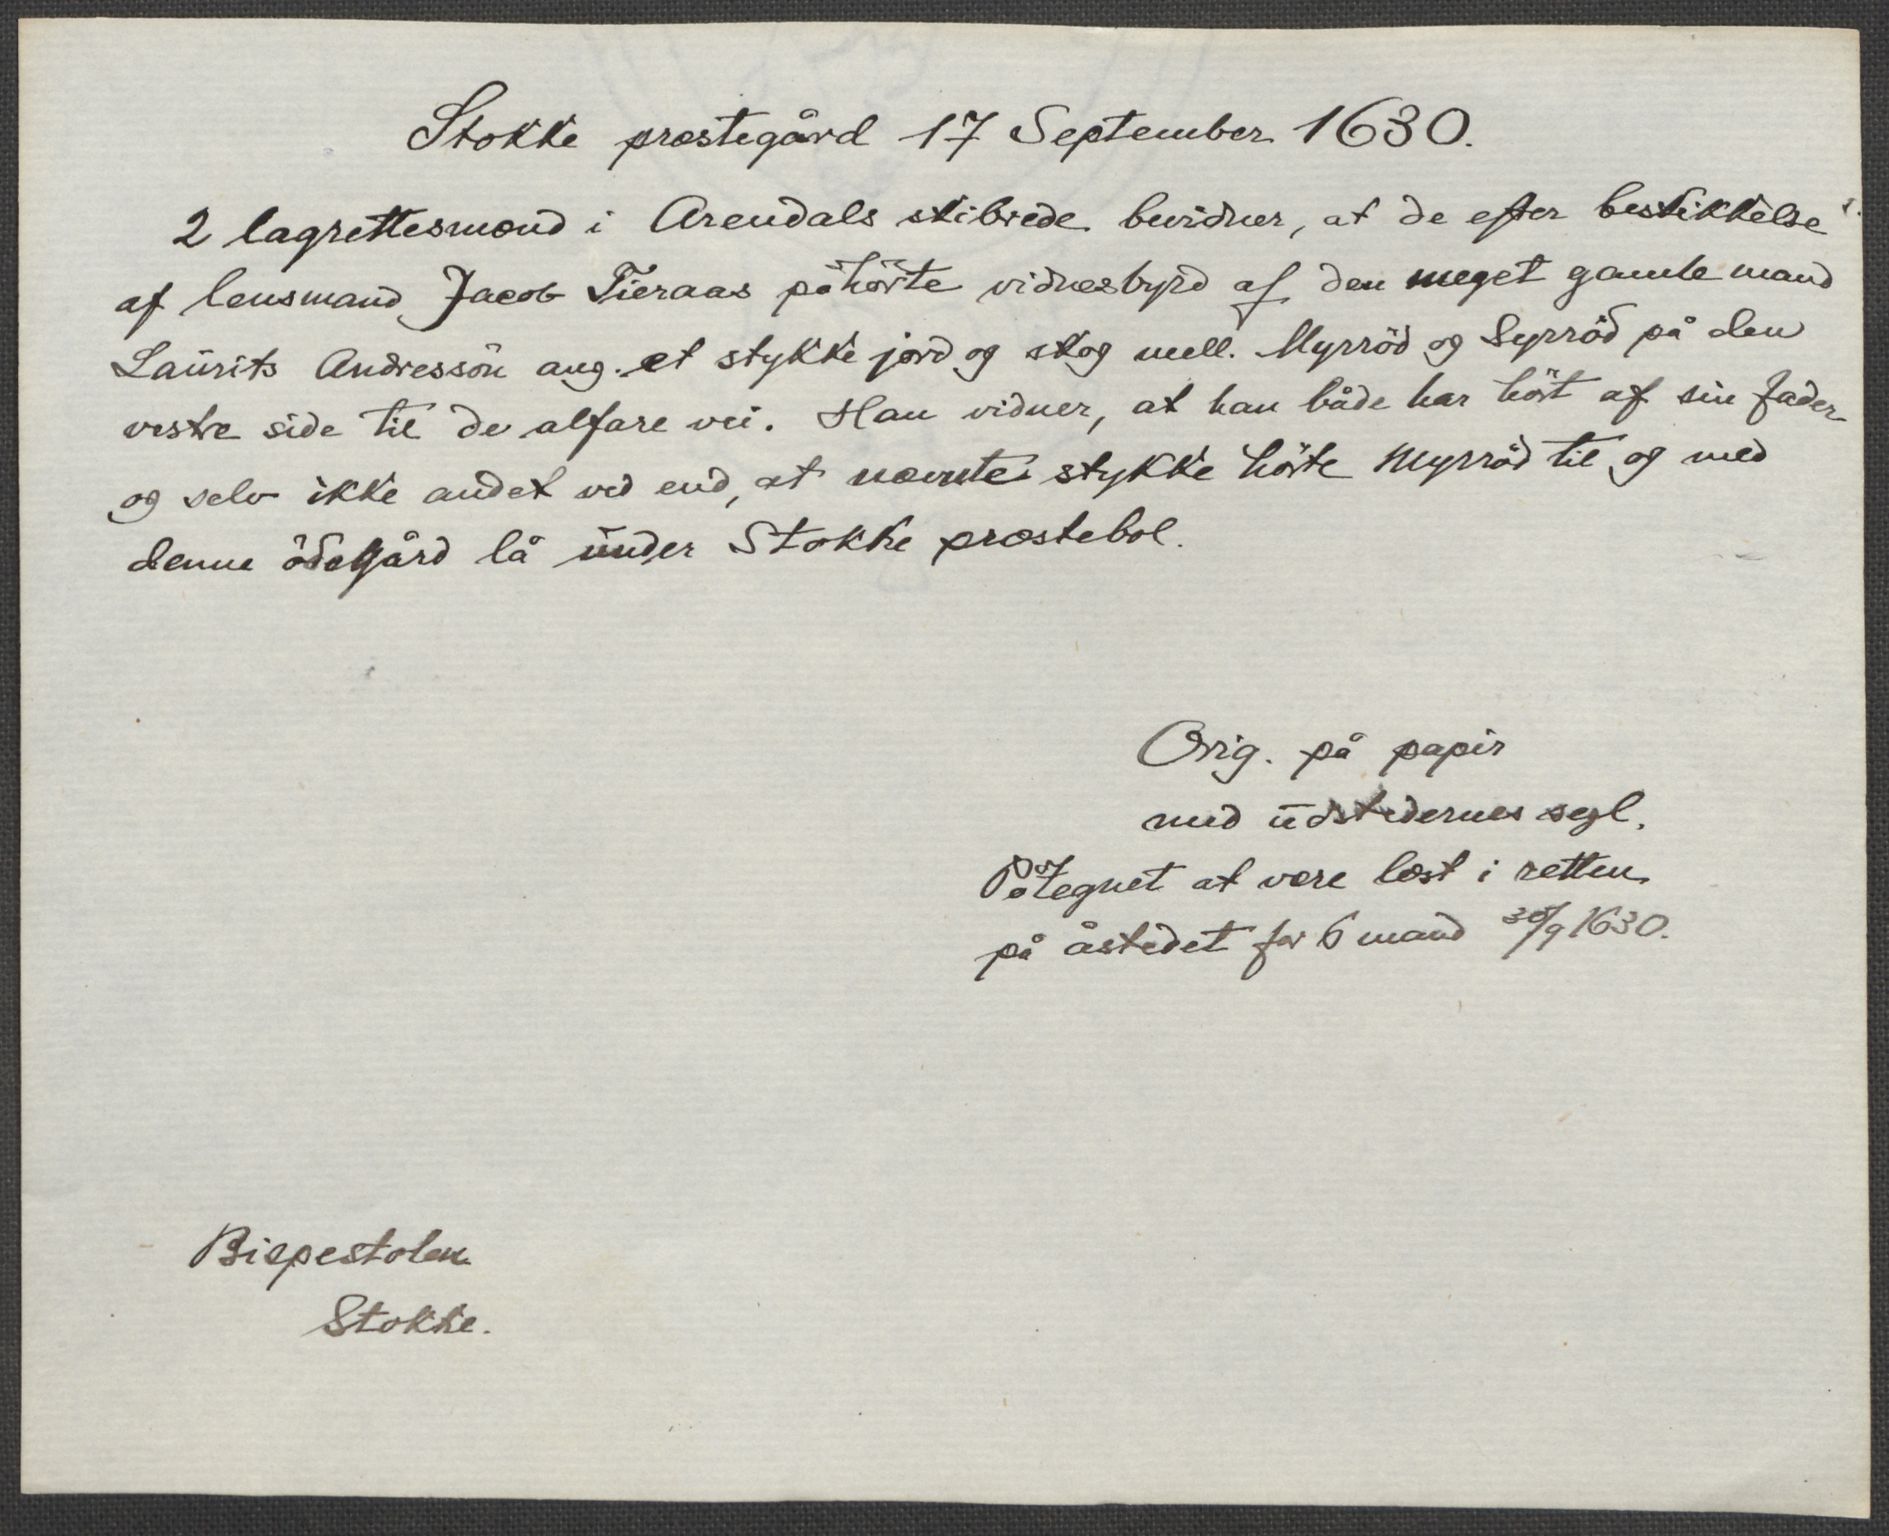 Stokke præstegård 17 September 1630.
2 lagrettesmænd i Arendals skibrede bevidner, at de efter bestikkelse
af lensmand Jacob Tieraas påhörte vidnesbyrd af den meget gamle mand
Laurits Andressön ang. et stykke jord og skog mell. Myrröd og Syrröd på den
vestre side til de alfare vei. Han vidner, at han både har hört af sin fader
og selv ikke andet ved end, at nævnte stykke hörte Myrröd til og med
denne ödegård lå under Stokke præstebol.
Orig. på papir
med udstedernes segl.
Påtegnet at være læst i retten
på åstedet for 6 mænd 30/9 1630.
Bispestolen
Stokke.